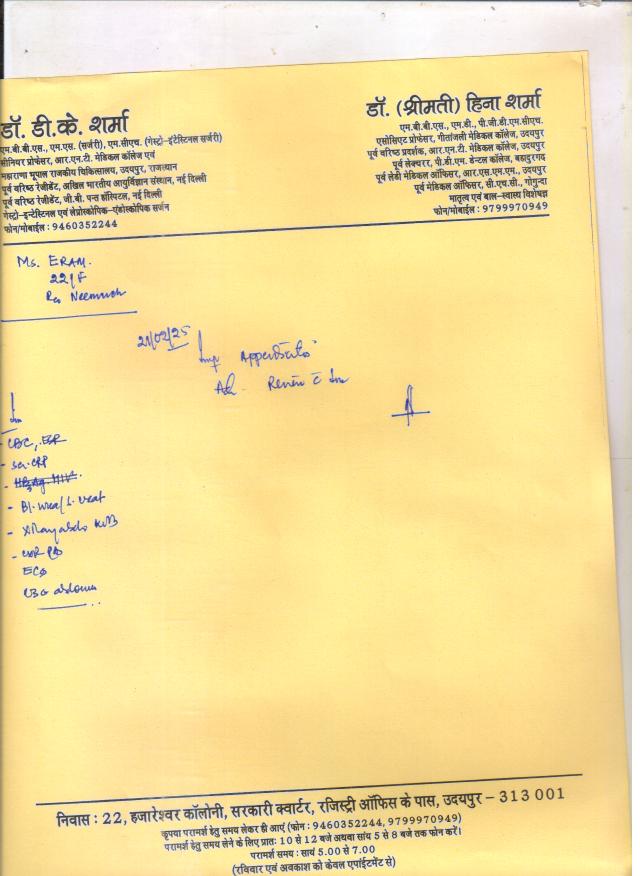 डॉ. डी.के. शर्मा
एम.बी.बी.एस., एम.एस. (सर्जरी), एम.सी.एच. (गेस्ट्रो-इंटेस्टिनल सर्जरी)
सीनियर प्रोफेसर, आर.एन.टी. मेडिकल कॉलेज एवं
महाराणा भूपाल राजकीय चिकित्सालय, उदयपुर, राजस्थान
पूर्व वरिष्ठ रेजीडेंट, अखिल भारतीय आयुर्विज्ञान संस्थान, नई दिल्ली
पूर्व वरिष्ठ रेजीडेंट, जी.बी. पन्त हॉस्पिटल, नई दिल्ली
गेस्ट्रो-इन्टेस्टिनल एवं लेप्रोस्कोपिक-एंडोस्कोपिक सर्जन
फोन/मोबाईल : 9460352244
डॉ. (श्रीमती) हिना शर्मा
एम.बी.बी.एस., एम.डी., पी.जी.डी.एम.सी.एच.
एसोसिएट प्रोफेसर, गीतांजली मेडिकल कॉलेज, उदयपुर
पूर्व वरिष्ठ प्रदर्शक, आर.एन.टी. मेडिकल कॉलेज, उदयपुर
पूर्व लेक्चरर, पी.डी.एम. डेन्टल कॉलेज, बहादुरगढ़
पूर्व लेडी मेडिकल ऑफिसर, आर.एस.एम.एम., उदयपुर
पूर्व मेडिकल ऑफिसर, सी.एच.सी., गोगुन्दा
मातृत्व एवं बाल-स्वास्थ्य विशेषज्ञ
फोन/मोबाईल : 9799970949
Ms. ERAM.
22/F
R/o Neemuch
21/02/25
Imp Appendicitis
Adv. Review c Inv
Inv
- CBC, ESR
- Sr. CRP
- HBsAg HIV
- Bl. Urea/ S. Creat
- X Ray abdo KUB
ECG
USG abdomen
निवास : 22, हजारेश्वर कॉलोनी, सरकारी क्वार्टर, रजिस्ट्री ऑफिस के पास, उदयपुर - 313 001
कृपया परामर्श हेतु समय लेकर ही आएं (फोन : 9460352244, 9799970949)
परामर्श हेतु समय लेने के लिए प्रातः 10 से 12 बजे अथवा सायं 5 से 8 बजे तक फोन करें।
परामर्श समय : सायं 5.00 से 7.00
(रविवार एवं अवकाश को केवल एपॉइंटमेंट से)